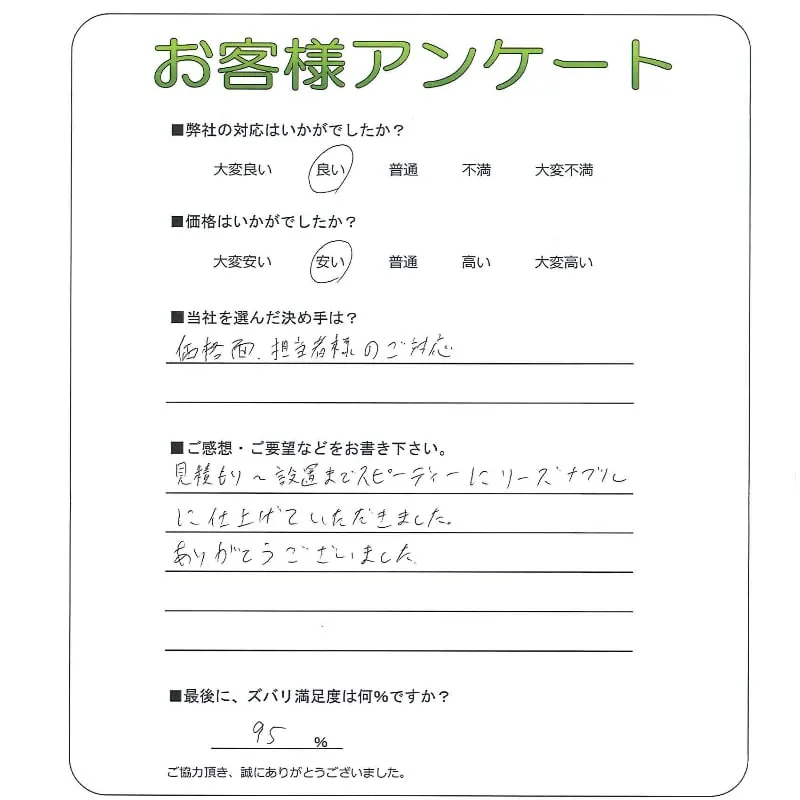 お客様アンケート
■弊社の対応はいかがでしたか？
大変良い 良い 普通 不満 大変不満
■価格はいかがでしたか？
大変安い 安い 普通 高い 大変高い
■当社を選んだ決め手は？
価格面、担当者様のご対応
■ご感想・ご要望などをお書き下さい。
見積もり～設置までスピーディーにリーズナブル
に仕上げていただきました。
ありがとうございました。
■最後に、ズバリ満足度は何%ですか？
95 %
ご協力頂き、誠にありがとうございました。